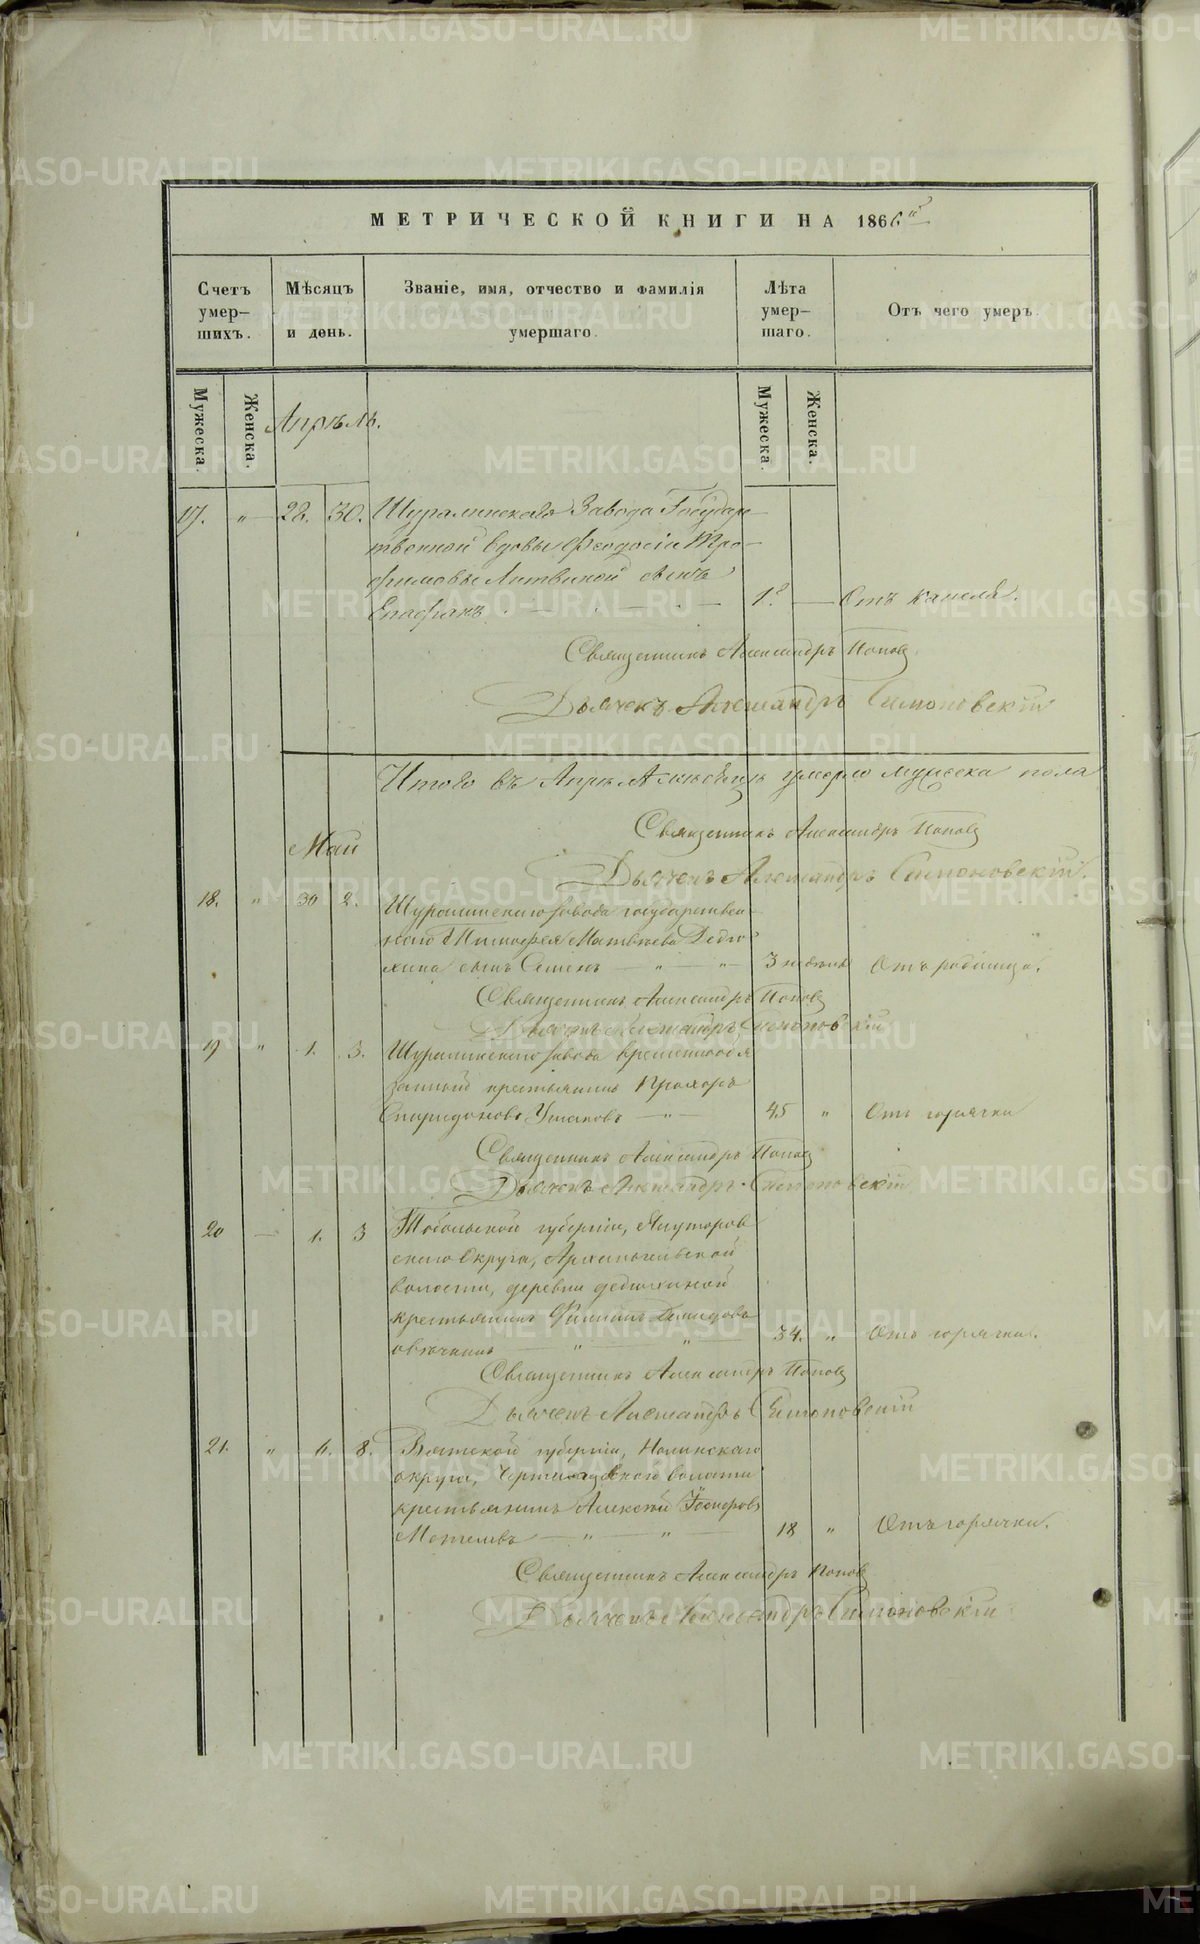 МЕТРИЧЕСКОЙ КНИГИ НА 1866й
Счетъ умер-шихъ.
Мѣсяцъ и день.
Званіе, имя, отчество и фамилія умершаго.
Лѣта умер-шаго.
Отъ чего умеръ.
Мужеска.
Женска.
Апрѣль.
Мужеска.
Женска.
17. „ 28. 30. Шуралинскаго Завода Государ-
твенной вдовы Феодосіи Тро-
фимовы Литвиной сынъ
Епафранъ 1. Отъ кашеля.
Священникъ Александръ Поповъ
Дьячекъ Александръ Симоновскій
Итого въ Апрѣлѣ мѣсяцѣ умерло мужеска пола
Священникъ Александръ Поповъ
Май
Дьячекъ Александръ Симоновскій.
18. „ 30 2. Шуралинскаго завода государствен-
наго Тимофея Матвѣева Дедю-
хина сынъ Семенъ — „ — „ 3 недѣли Отъ родимца.
Священникъ Александръ Поповъ
Дьячекъ Александръ Симоновскій
19 „ 1. 3. Шуралинскаго завода временнообя
занной крестьянинъ Прохоръ
Спиридоновъ Ушаковъ — „ — 45 „ Отъ горячки
Священникъ Александръ Поповъ
Дьячекъ Александръ Симоновскій
20 — 1. 3 Тобольской губерніи, Ялуторов
скаго Округа, Архангельской
волости, деревни Дедюхиной
крестьянинъ Филипъ
овечкинъ — „ — „ — 34. „ Отъ горячки.
Священникъ Александръ Поповъ
Дьячекъ Александръ Симоновскій
21. „ 6. 8. Вятской губерніи, Нолинскаго
округа, волости
крестьянинъ Алексѣй
— „ — „ — 18 „ Отъ горячки.
Священникъ Александръ Поповъ
Дьячекъ Александръ Симоновскій
METRIKI.GASO-URAL.RU